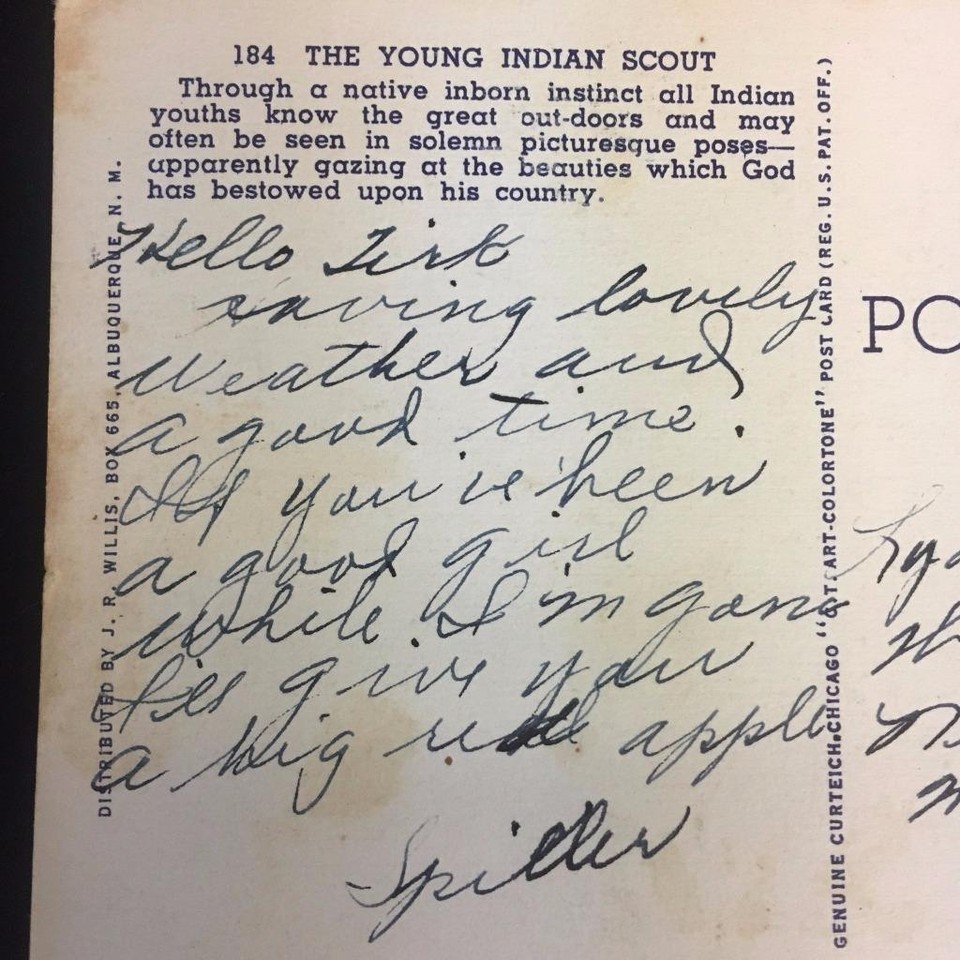 184 THE YOUNG INDIAN SCOUT
Through a native inborn instinct all Indian
youths know the great out-doors and may
often be seen in solemn picturesque poses—
apparently gazing at the beauties which God
has bestowed upon his country.
Hello
saving lovely
weather and
a good time.
If you've been
a good girl
while I'm gone
I'll give you
a big red apple
DISTRIBUTED BY J. R. WILLIS, BOX 665, ALBUQUERQUE, N. M.
GENUINE CURTEICH-CHICAGO "C.T. ART-COLORTONE" POST CARD (REG. U.S. PAT. OFF.)
PO